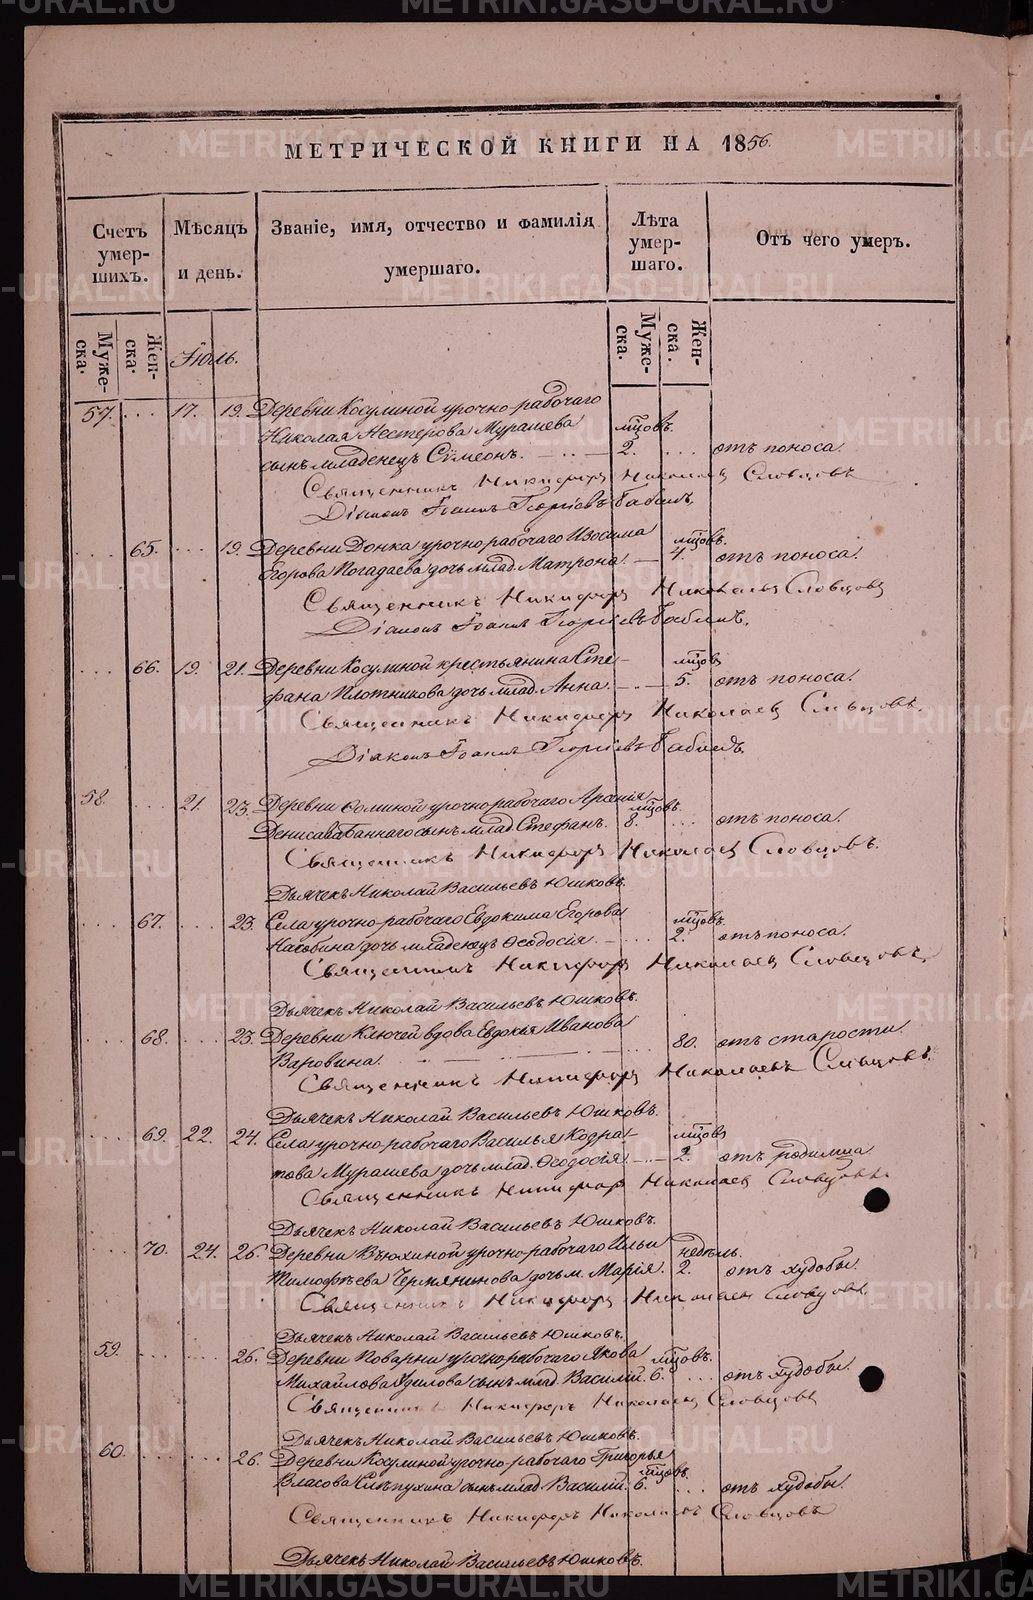 МЕТРИЧЕСКОЙ КНИГИ НА 1856.
Счетъ умер-шихъ.
Мѣсяцъ и день.
Званіе, имя, отчество и фамилія умершаго.
Лѣта умер-шаго.
Отъ чего умеръ.
Муже-ска.
Жен-ска.
Муже-ска.
Жен-ска.
Іюль.
57. ... 17. 19. Деревни Косулиной урочно-рабочаго
Николая Нестерова Мурашева мцовъ.
сынъ младенецъ Сѵмеонъ. 2. ... отъ поноса.
Священникъ Никифоръ Николаевъ Словцовъ
Діаконъ Іоаннъ Георгіевъ Бабинъ.
... 65. ... 19. Деревни Донка урочно рабочаго Изосима мцовъ.
Егорова Погадаева дочь млад. Матрона. 4. отъ поноса.
Священникъ Никифоръ Николаевъ Словцовъ
Діаконъ Іоаннъ Георгіевъ Бабинъ.
... 66. 19. 21. Деревни Косулиной крестьянина Сте- мцовъ
фана Плотникова дочь млад. Анна. 5. отъ поноса.
Священникъ Никифоръ Николаевъ Словцовъ.
Діаконъ Іоаннъ Георгіевъ Бабинъ
58. ... 21. 23. Деревни Ѳоминой урочно рабочаго Арсенія мцовъ.
Денисова сынъ млад. Стефанъ. 8. ... отъ поноса.
Священникъ Никифоръ Николаевъ Словцовъ.
Дьячекъ Николай Васильевъ Юшковъ.
... 67. ... 23. Села урочно-рабочаго Евдокима Егорова мцовъ.
дочь младенецъ Ѳеодосія. 2. отъ поноса.
Священникъ Никифоръ Николаевъ Словцовъ.
Дьячекъ Николай Васильевъ Юшковъ.
... 68. ... 23. Деревни Ключей вдова Евдокія Иванова
Варовина. 80. отъ старости.
Священникъ Никифоръ Николаевъ Словцовъ.
Дьячекъ Николай Васильевъ Юшковъ.
... 69. 22. 24. Села урочно-рабочаго Василья Кодра- мцовъ
това Мурашева дочь млад. Ѳеодосія. 2. отъ родимца
Священникъ Никифоръ Николаевъ Словцовъ.
Дьячекъ Николай Васильевъ Юшковъ.
... 70. 24. 26. Деревни Вьюхиной урочно-рабочаго Ильи недѣль.
Тимофѣева Чермянинова дочь м. Марія. 2. отъ худобы.
Священникъ Никифоръ Николаевъ Словцовъ.
Дьячекъ Николай Васильевъ Юшковъ.
59. ... ... 26. Деревни Поварни урочно рабочаго Якова мцовъ.
Михайлова сынъ млад. Василій. 6. ... отъ худобы.
Священникъ Никифоръ Николаевъ Словцовъ
Дьячекъ Николай Васильевъ Юшковъ.
60. ... ... 26. Деревни Косулиной урочно-рабочаго Григорья мцовъ.
Власова Слѣпухина сынъ млад. Василій. 6. ... отъ худобы.
Священникъ Никифоръ Николаевъ Словцовъ
Дьячекъ Николай Васильевъ Юшковъ.
METRIKI.GASO-URAL.RU